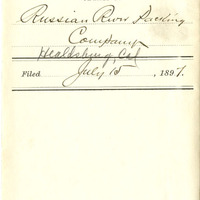 Russian River Packing
Company
Healdsburg, Cal
Filed July 15, 1897.